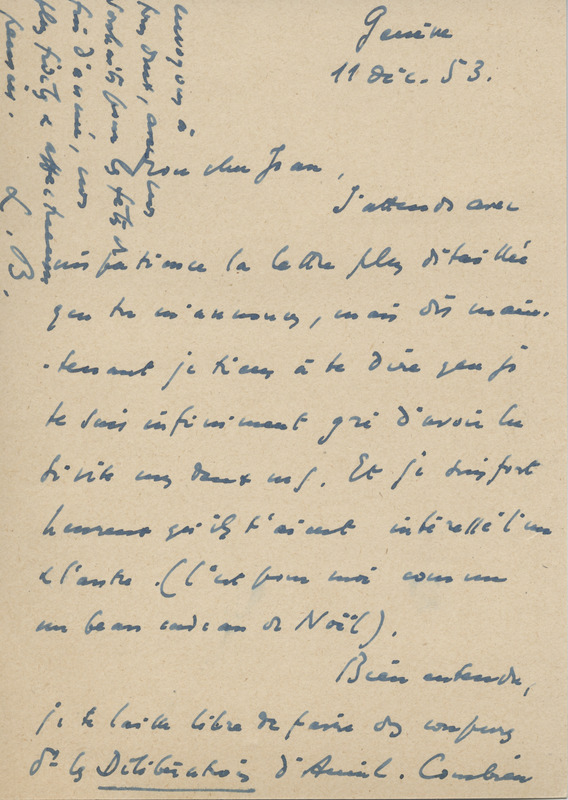 Genève
11 déc. 53.
Mon cher Jean,
J'attends avec
impatience la lettre plus détaillée
que tu m'annonces, mais dès main-
-tenant je tiens à te dire que je
te suis infiniment gré d'avoir lu
si vite mes deux ms. Et je suis fort
heureux qu'ils t'aient intéressé l'un
& l'autre. (C'est pour moi comme
un beau cadeau de Noël).
Bien entendu,
je te laisse libre de faire des coupures
ds les Délibérations d'Amiel. Combien
envoyons à
vous deux, avec nos
souhaits pour les fêtes de
fin d'année, nos
plus fidèles & affectueuses
pensées.
L. B.